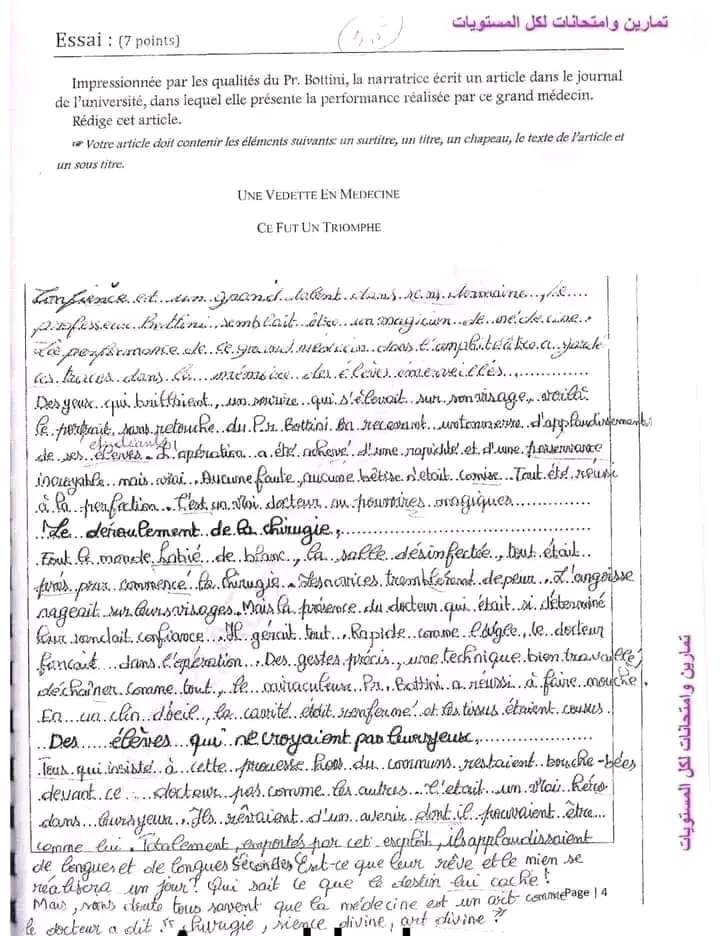 تمارين وامتحانات لكل المستويات
Essai : (7 points)
Impressionnée par les qualités du Pr. Bottini, la narratrice écrit un article dans le journal
de l'université, dans lequel elle présente la performance réalisée par ce grand médecin.
Rédige cet article.
☞ Votre article doit contenir les éléments suivants: un surtitre, un titre, un chapeau, le texte de l'article et
un sous titre.
UNE VEDETTE EN MEDECINE
CE FUT UN TRIOMPHE
et un grand talent dans domaine, le
professeur Bottini semblait être un magicien de médecine.
La performance de ce grand médecin dans l'amphitéâtre a gardé
ces traces dans la mémoire des élèves émerveillés
Des yeux qui brillaient, un sourire qui s'élevait sur son visage, voilà
le portrait sans retouche du Pr. Bottini en recevant un tonnerre d'applaudissements
étudiants
de ses élèves. L'opération a été achevé d'une rapidité et d'une
incroyable mais vrai. Aucune faute, aucune bêtise n'était comise. Tout été réussi
à la perfection. C'est un vrai docteur au pouvoires magiques
Le déroulement de la chirugie,
Tout le monde habié de blanc, la salle désinfectée, tout était
près pour commencé la chirugie. Les novices tremblèrent de peur. L'angoisse
nageait sur leurs visages. Mais la présence du docteur qui était si déterminé
leur confiance. Il gérait tout. Rapide comme le docteur
dans l'opération. Des gestes précis, une technique bien travaillé,
déchaîner comme tout, le miraculeux Pr. Bottini a réussi à faire mouche.
En un clin d'oeil, la cavité était renfermé et les tissus étaient cousus.
Des élèves qui ne croyaient pas leurs yeux,
Tous qui insisté à cette prouesse hors du communs restaient bouche-bées
devant ce docteur pas comme les autres. C'était un vrai héro
dans leurs yeux. Ils rêvaient d'un avenir dont il pouvaient être
comme lui. Totalement, emportés par cet exploit, ils applaudissaient
de longues et de longues secondes Est-ce que leur rêve et le mien se
réalisera un jour? Qui sait ce que le destin lui cache!
Mais, sans doute tous savent que la médecine est un art comme
Page | 4
le docteur a dit "chirugie, sience divine, art divine"
تمارين وامتحانات لكل المستويات